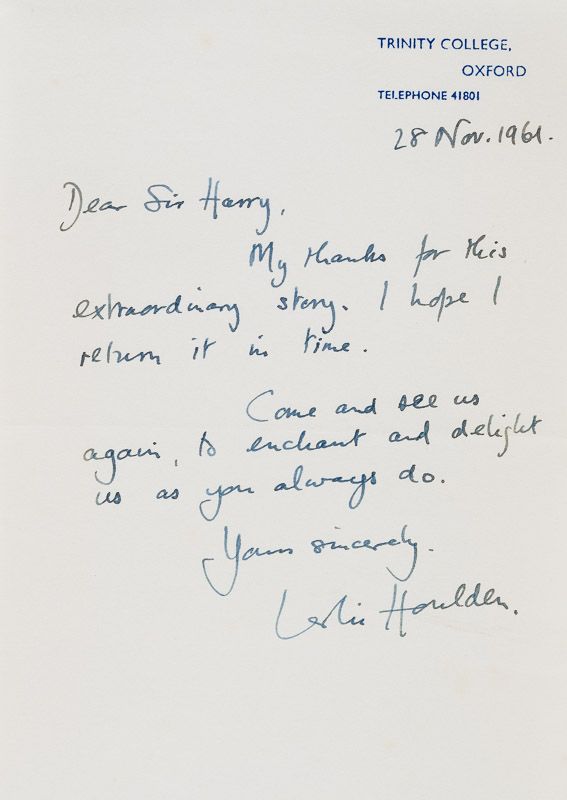 TRINITY COLLEGE,
OXFORD
TELEPHONE 41801
28 Nov. 1961.
Dear Sir Harry,
My thanks for this
extraordinary story. I hope I
return it in time.
Come and see us
again, to enchant and delight
us as you always do.
Yours sincerely.
Leslie Houlden.